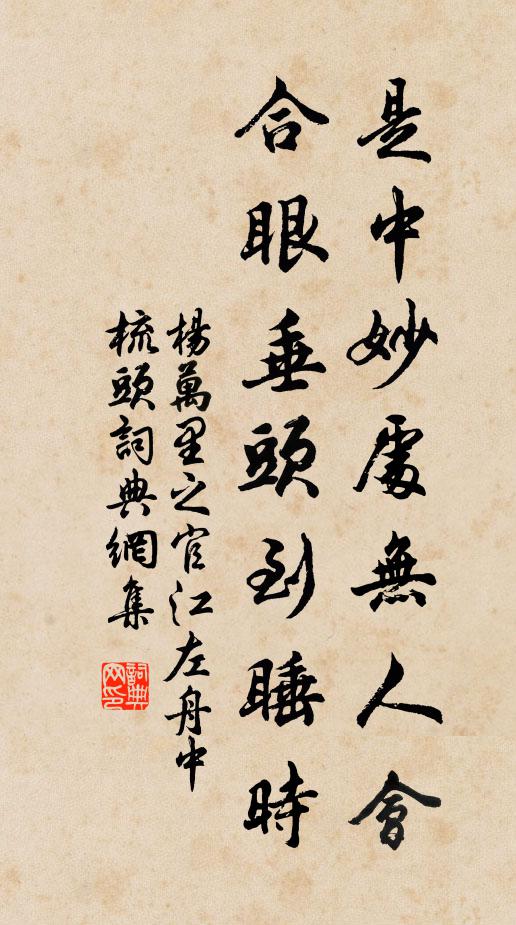 是中妙處無人會
合眼垂頭到睡時
楊萬里之官江左舟中
梳頭詞典網集
詞典
网印